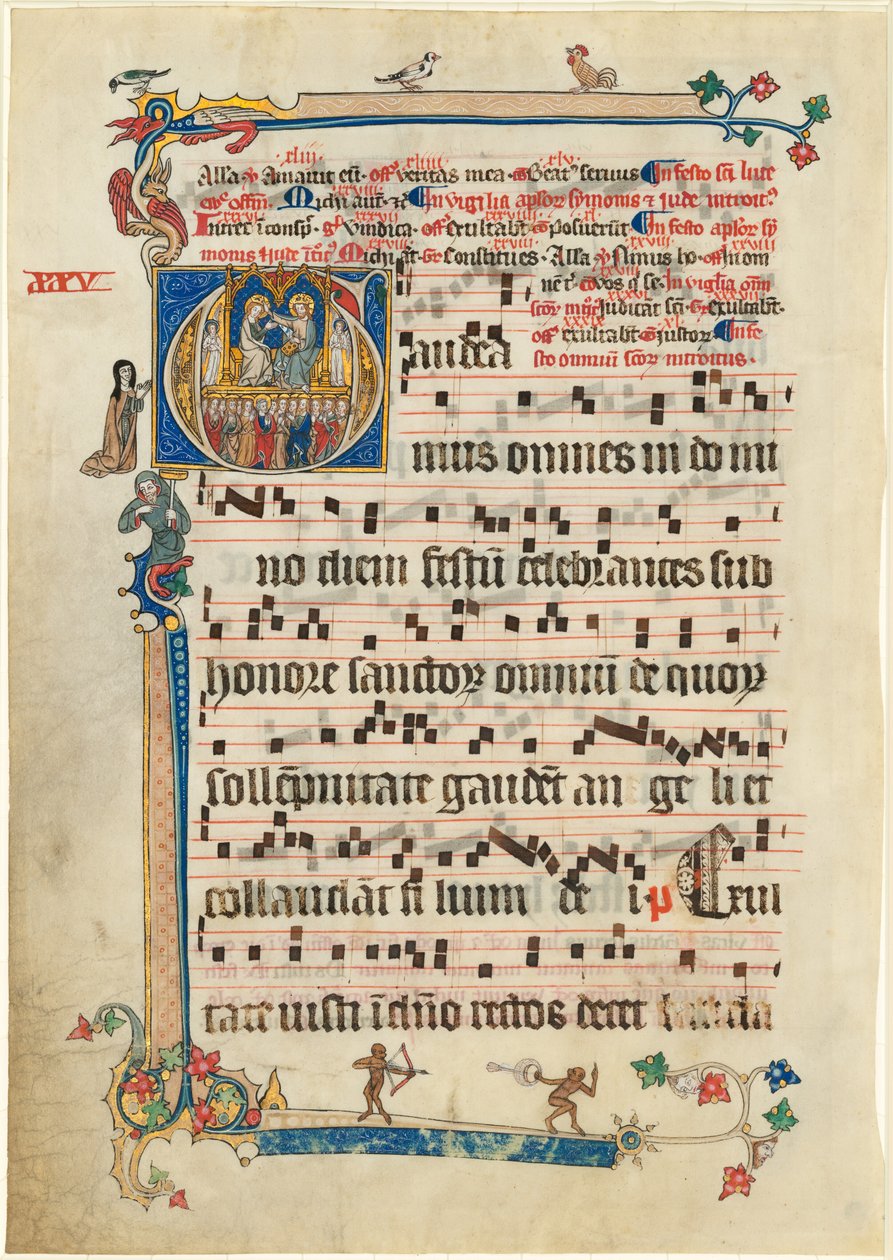 xliii xliiii xlv
Alla ꝟ Amauit eū · off veritas mea · co Beat' seruus In festo sci luce
Michi aūt · ⁊c In vigilia aplor symonis ⁊ iude introit'
Intret ī consp · gr Vindica · off Exultabt co Posuerūt In festo aplor sy
monis ⁊ iude Michi āt · Gr Constitues · Alla ꝟ Nimis ho · off In om
nē t' · co vos q se · In viglia omī
scor Iudicāt sci · Gr exultabt ·
off exultabt co Justor · In fe
sto omnium scor introitus ·
Gaudea
mus omnes in do mi
no diem festū celebrantes sub
honore sanctoꝝ omniū de quoꝝ
sollēpnitate gaudēt an ge li et
collaudāt fi lium de i · p Exul
tate iusti ī dn̄o rectos decet